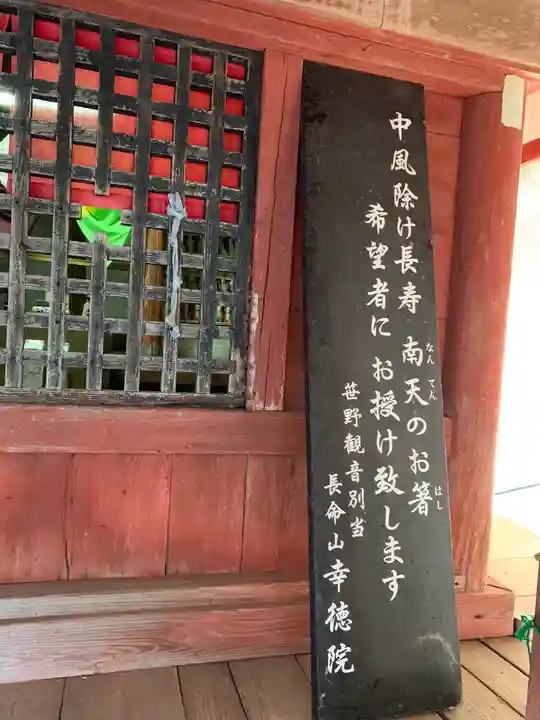 中風除け長寿 南天のお箸
なんてん
はし
希望者に お授け致します
笹野観音別当
長命山幸徳院